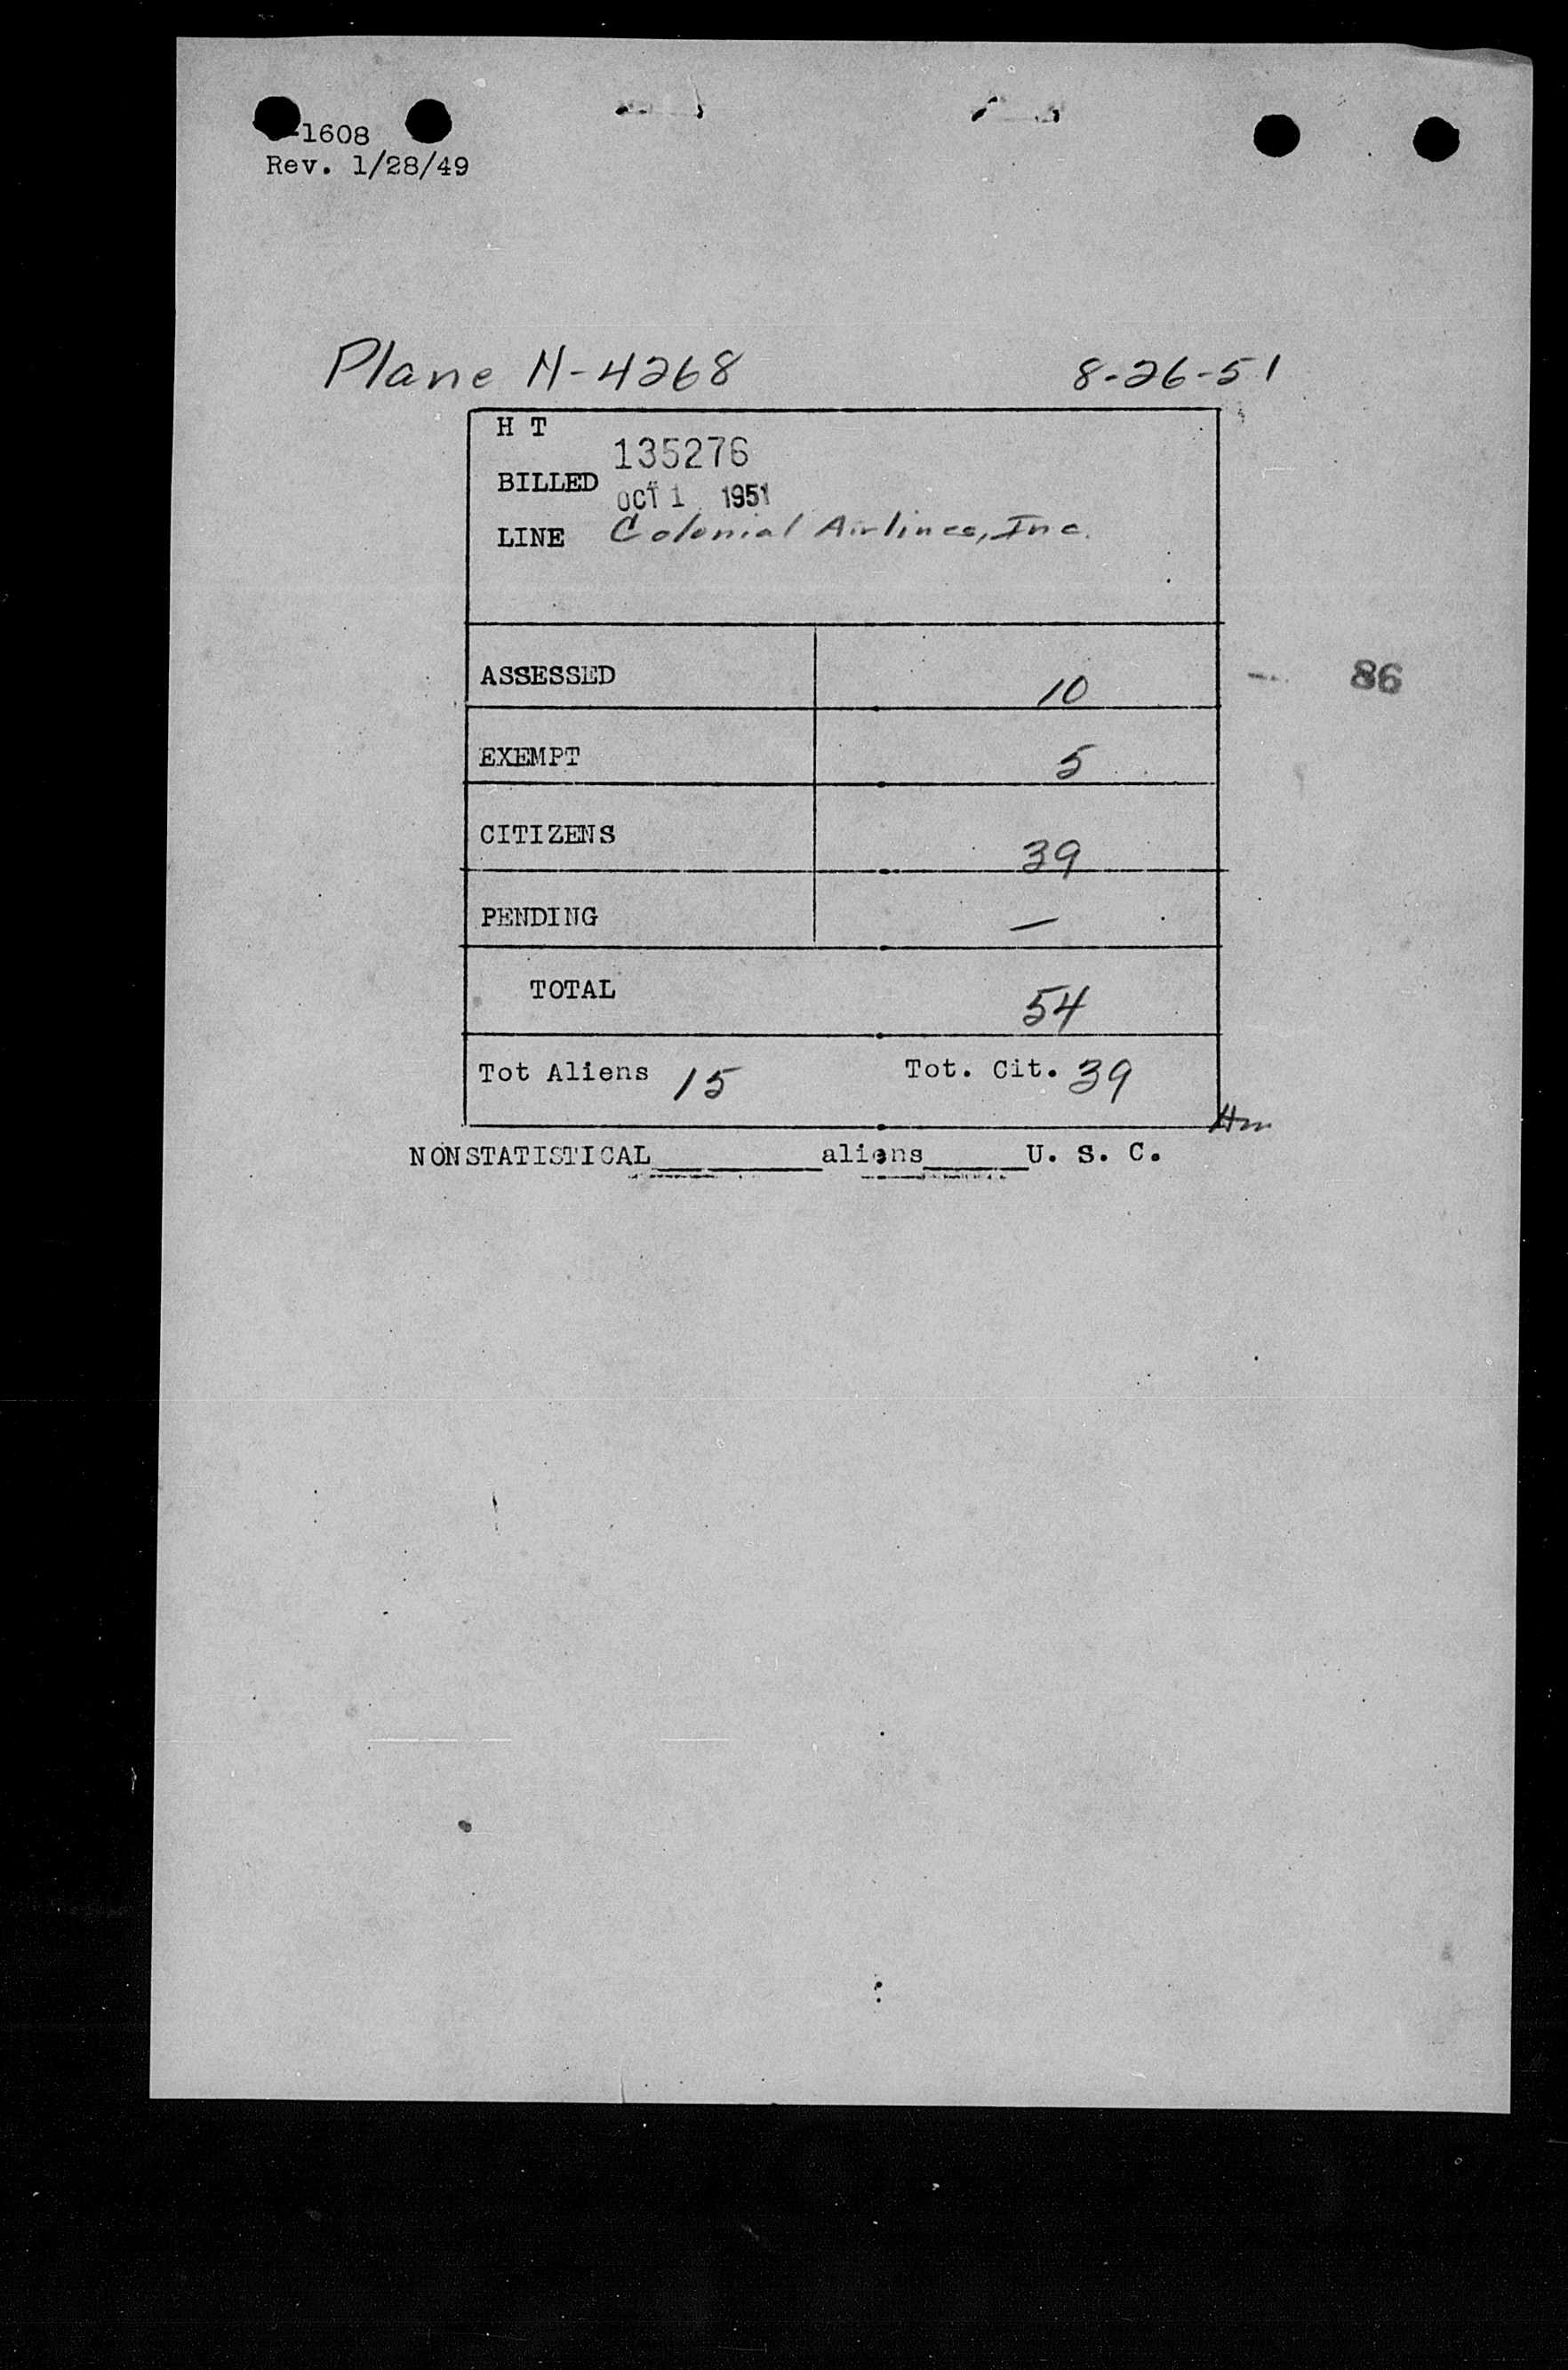 -1608
Rev. 1/28/49
Plane N-4268 8-26-51
H T
135276
BILLED
OCT 1 1951
LINE Colonial Airlines, Inc.
ASSESSED 10
86
EXEMPT 5
CITIZENS 39
PENDING —
TOTAL 54
Tot Aliens 15 Tot. Cit. 39
NONSTATISTICAL________aliens_____U. S. C.